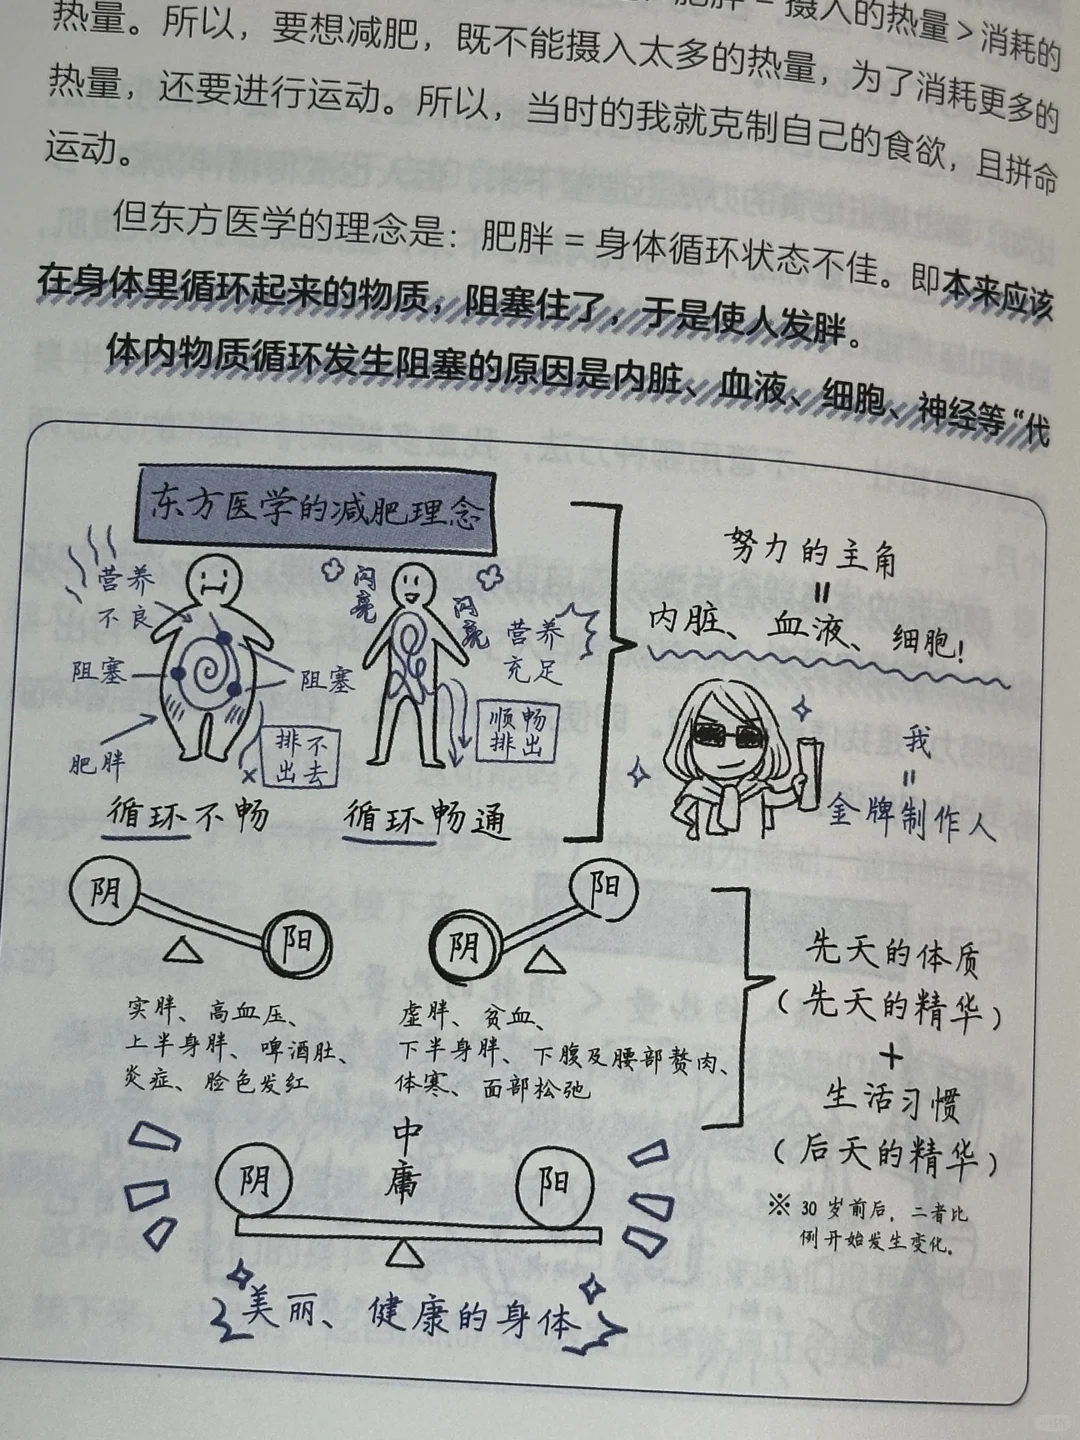 肥胖 = 摄入的热量 > 消耗的
热量。所以，要想减肥，既不能摄入太多的热量，为了消耗更多的
热量，还要进行运动。所以，当时的我就克制自己的食欲，且拼命
运动。
但东方医学的理念是：肥胖 = 身体循环状态不佳。即本来应该
在身体里循环起来的物质，阻塞住了，于是使人发胖。
体内物质循环发生阻塞的原因是内脏、血液、细胞、神经等“代
东方医学的减肥理念
营养
不良
阻塞
肥胖
阻塞
排不
出去
循环不畅
闪亮
闪亮
营养
充足
顺畅
排出
循环畅通
努力的主角
=
内脏、血液、细胞！
我
=
金牌制作人
阴
阳
实胖、高血压、
上半身胖、啤酒肚、
炎症、脸色发红
阴
阳
虚胖、贫血、
下半身胖、下腹及腰部赘肉、
体寒、面部松弛
先天的体质
（先天的精华）
+
生活习惯
（后天的精华）
※ 30 岁前后，二者比
例开始发生变化。
中庸
阴
阳
美丽、健康的身体